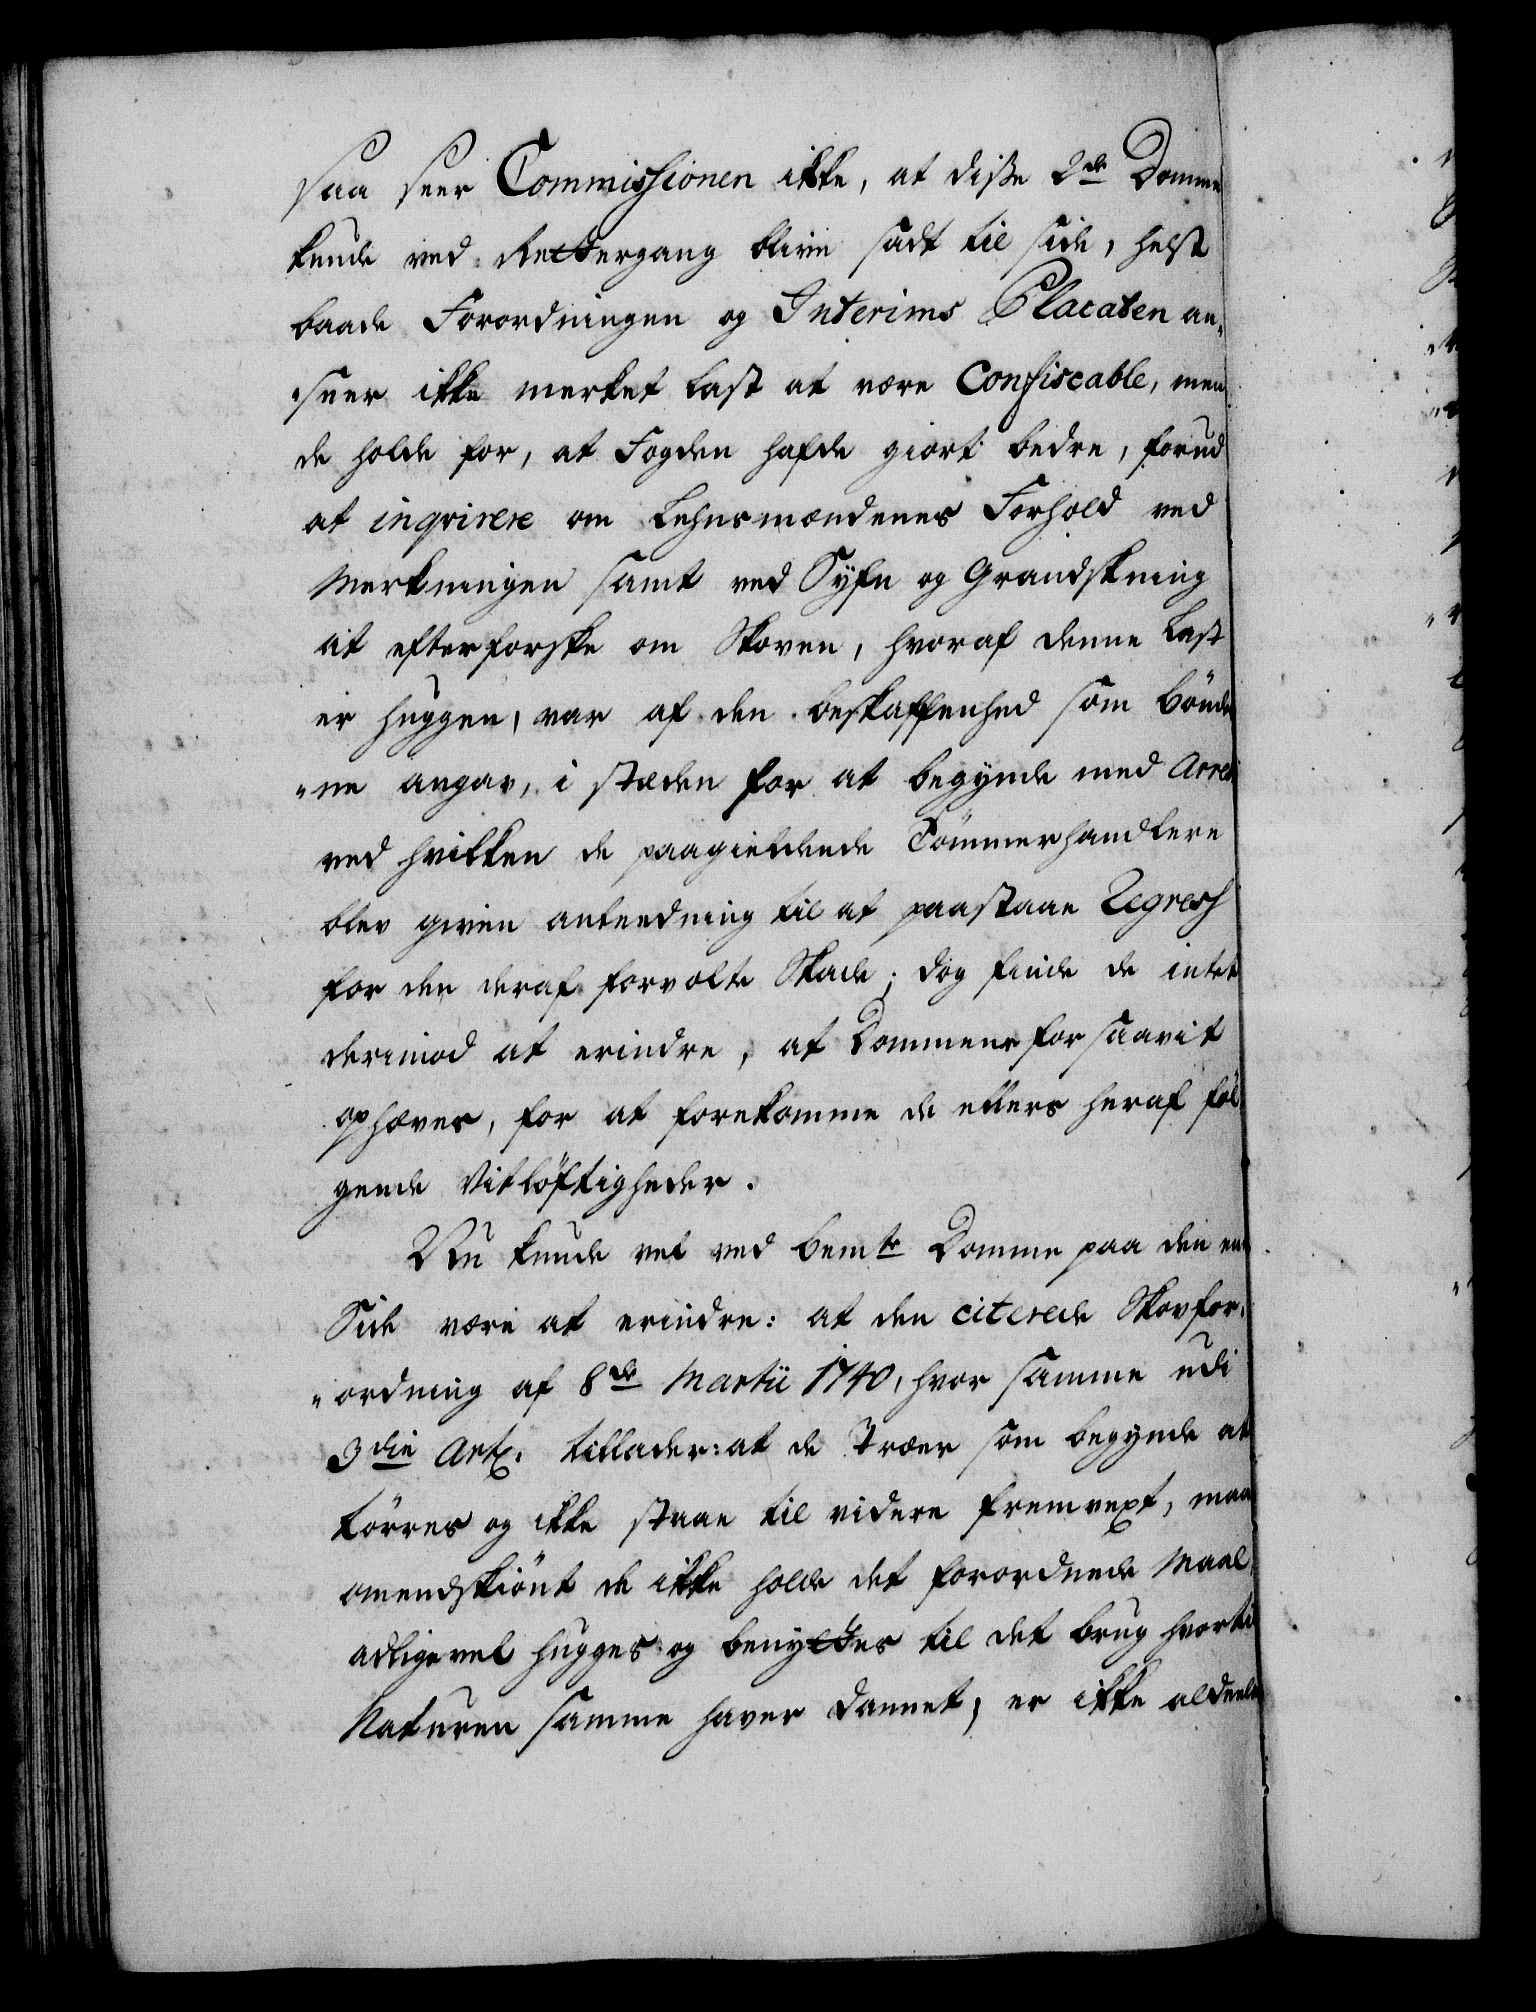 saa seer Commissionen ikke, at disse 2de Domme
kunde ved Rettergang blive sadt til side, helst
baade Forordningen og Interims Placaten an-
seer ikke merket Last at være Confiscable, men
de holde for, at Fogden hafde giort bedre, forud
at inqvirere om Lehnsmændenes Forhold ved
Merkningen samt ved Syfn og Grandskning
at efterforske om Skoven, hvoraf denne Last
er huggen, var af den beskaffenhed som Bønder
ne angav, i stæden for at begynde med Arrest
ved hvilken de paagieldende Tömmerhandlere
blev given anleedning til at paastaae Regress
for den deraf forvolte Skade; dog finde de intet
derimod at erindre, at Dommene for saavit
ophæves, for at forekomme de ellers heraf föl-
gende Vitlöftigheder.
Nu kunde vel ved bemte Domme paa den ene
Side være at erindre: at den citerede Skovfor-
ordning af 8de Martii 1740, hvor samme udi
3die Art. tillader: at de Træer som begynde at
törres og ikke staae til videre fremvext, maa
omendskiönt de ikke holde det forordnede Maal,
alligevel hugges og benyttes til det brug hvortil
Naturen samme haver dannet, er ikke aldeeles